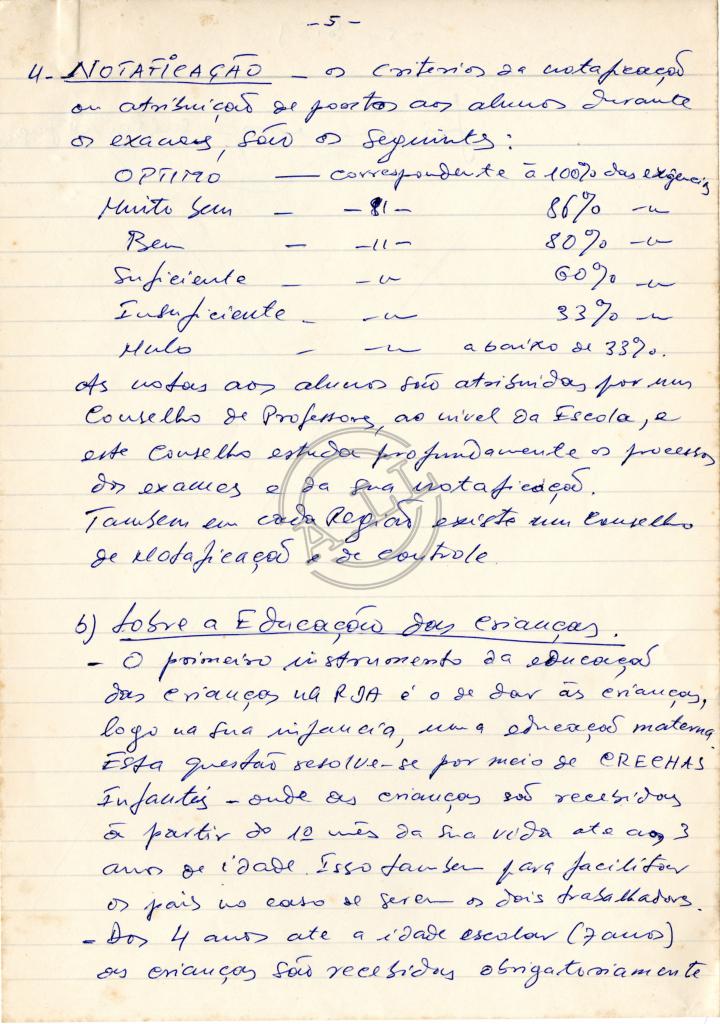 - 5 -
4- NOTAFICAÇÃO - os criterios da notaficaçaõ
ou atribuiçaõ de pontos aos alunos durante
os exames, saõ os seguintes:
OPTIMO — correspondente à 100% das exigências
Muito bem - -11- 86% -"
Bem - -11- 80% -"
Suficiente - -" 60% -"
Insuficiente - -" 33% -"
Malo - -" abaixo de 33%.
As notas aos alunos saõ atribuidas por um
Conselho de Professores, ao nivel da Escola, e
este Conselho estuda profundamente os processos
dos exames e da sua notaficaçaõ.
Tambem em cada Regiaõ existe um Conselho
de Notaficaçaõ e de controle.
ALL
b) Sobre a Educação das Crianças.
- O primeiro instrumento da educaçaõ
das crianças na RDA é o de dar às crianças,
logo na sua infancia, uma educaçaõ materna.
Esta questaõ resolve-se por meio de CRECHAS
Infantís - onde as crianças saõ recebidas
à partir do 1º mês da sua vida ate aos 3
anos de idade. Isso tambem para facilitar
os pais no caso de serem os dois trabalhadores.
- Dos 4 anos ate a idade escolar (7 anos)
as crianças saõ recebidas obrigatoriamente